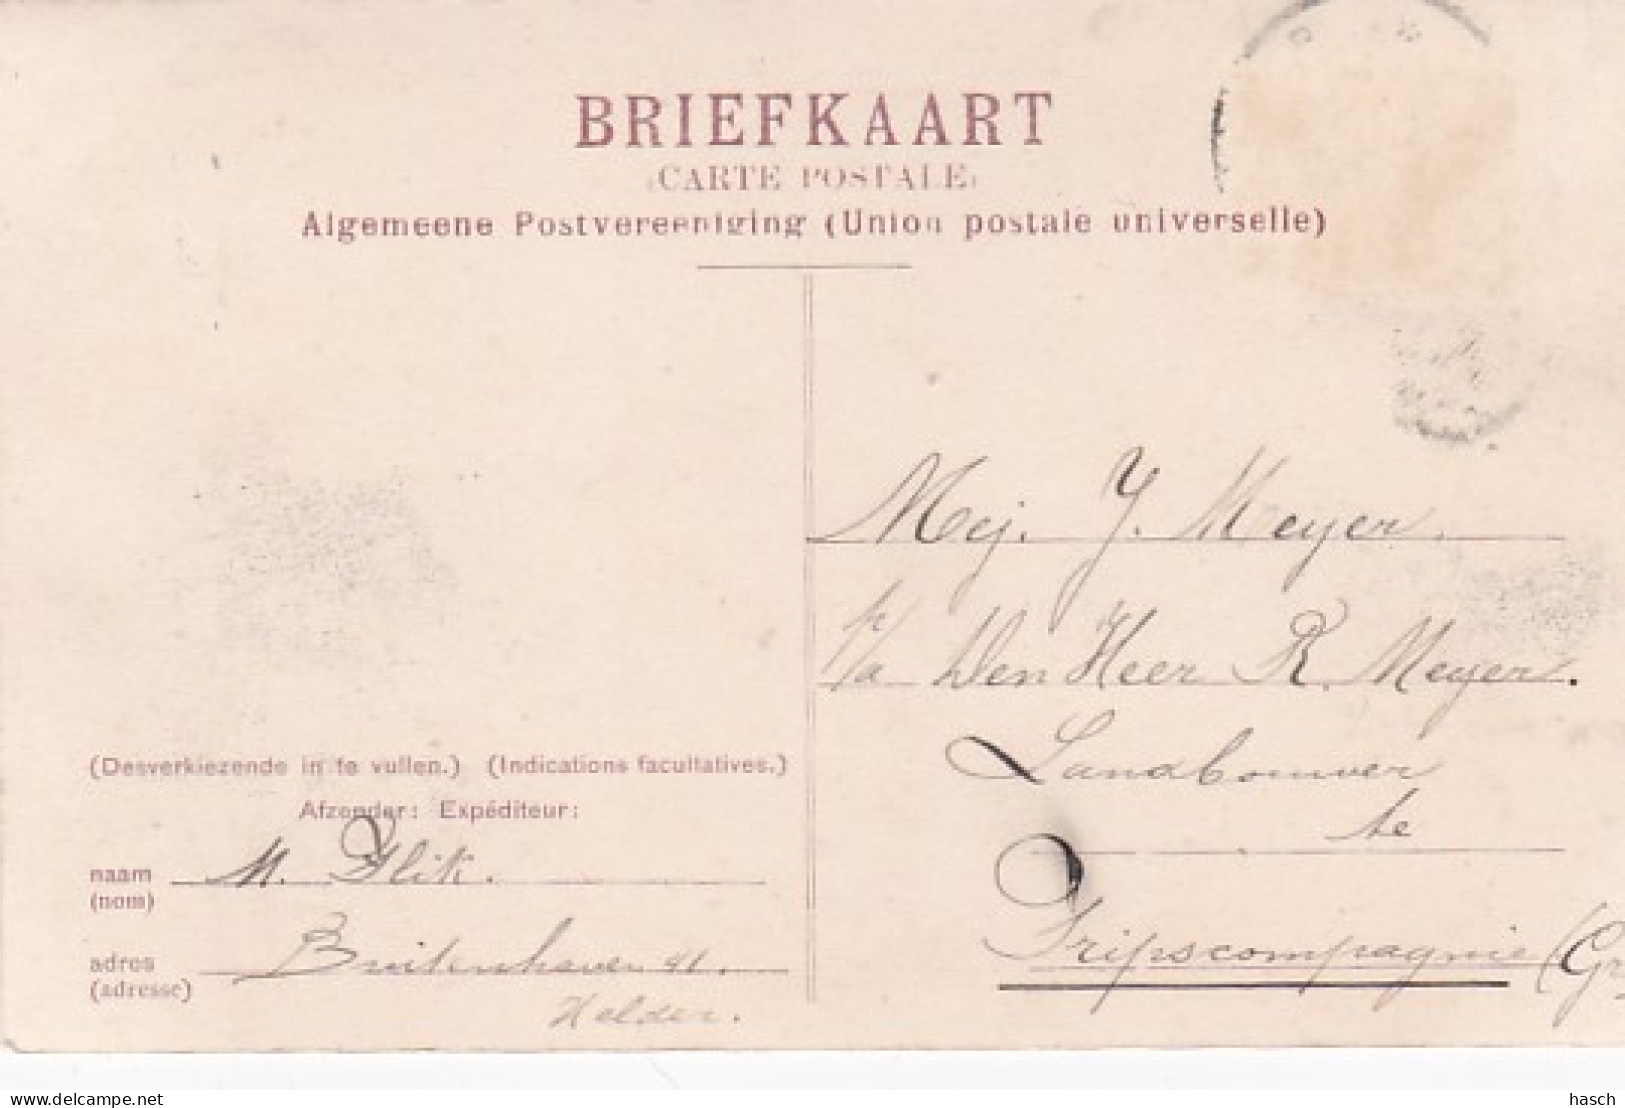 BRIEFKAART
(CARTE POSTALE)
Algemeene Postvereeniging (Union postale universelle)
Mej. J. Meyer.
p/a Den Heer R. Meyer.
Landbouwer
te
Tripscompagnie (Gr
(Desverkiezende in te vullen.) (Indications facultatives.)
Afzender: Expéditeur:
naam M. Flik.
(nom)
adres Buitenhaven 41.
(adresse)
Helder.
delcampe.net
hasch